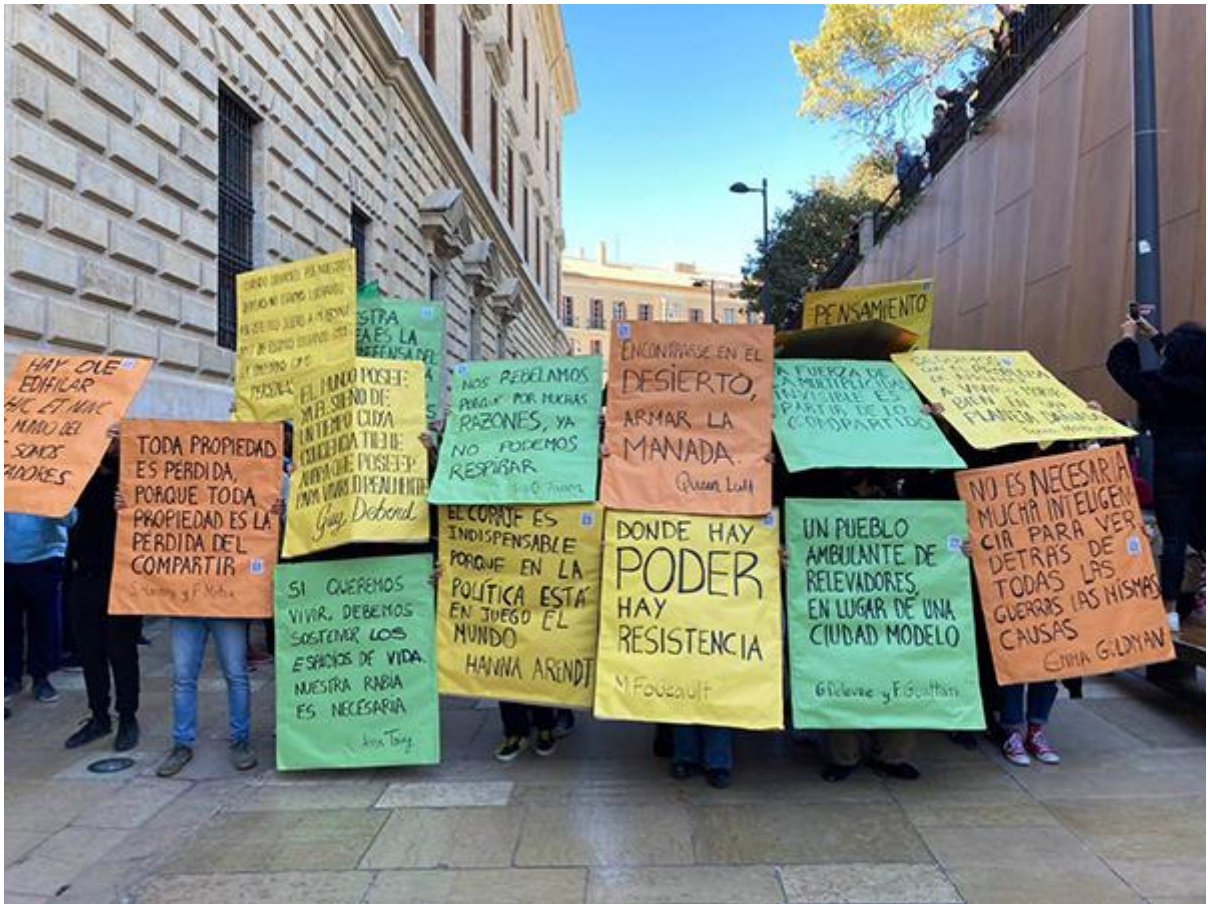 HAY QUE
EDIFICAR
HIC ET NUNC
MUNDO DEL
SOMOS
TODA PROPIEDAD
ES PERDIDA,
PORQUE TODA
PROPIEDAD ES LA
PERDIDA DEL
COMPARTIR
EL MUNDO POSEE
YA EL SUEÑO DE
UN TIEMPO CUYA
CONCIENCIA TIENE
AHORA QUE POSEER
PARA VIVIRLO REALMENTE
Guy Debord
ES LA
DEFENSA DEL
SI QUEREMOS
VIVIR, DEBEMOS
SOSTENER LOS
ESPACIOS DE VIDA.
NUESTRA RABIA
ES NECESARIA
NOS REBELAMOS
PORQUE POR MUCHAS
RAZONES, YA
NO PODEMOS
RESPIRAR
EL CORAJE ES
INDISPENSABLE
PORQUE EN LA
POLÍTICA ESTÁ
EN JUEGO EL
MUNDO
HANNA ARENDT
ENCONTRARSE EN EL
DESIERTO,
ARMAR LA
MANADA.
DONDE HAY
PODER
HAY
RESISTENCIA
M. Foucault
PENSAMIENTO
LA FUERZA DE
LA MULTIPLICIDAD
INVISIBLE ES
PARTIR DE LO
COMPARTIDO
A VIVIR
BIEN EN UN
PLANETA DAÑADO
UN PUEBLO
AMBULANTE DE
RELEVADORES,
EN LUGAR DE UNA
CIUDAD MODELO
G Deleuze y F. Guattari
NO ES NECESARIA
MUCHA INTELIGEN-
CIA PARA VER
DETRAS DE
TODAS LAS
GUERRAS LAS MISMAS
CAUSAS
EMMA GOLDMAN